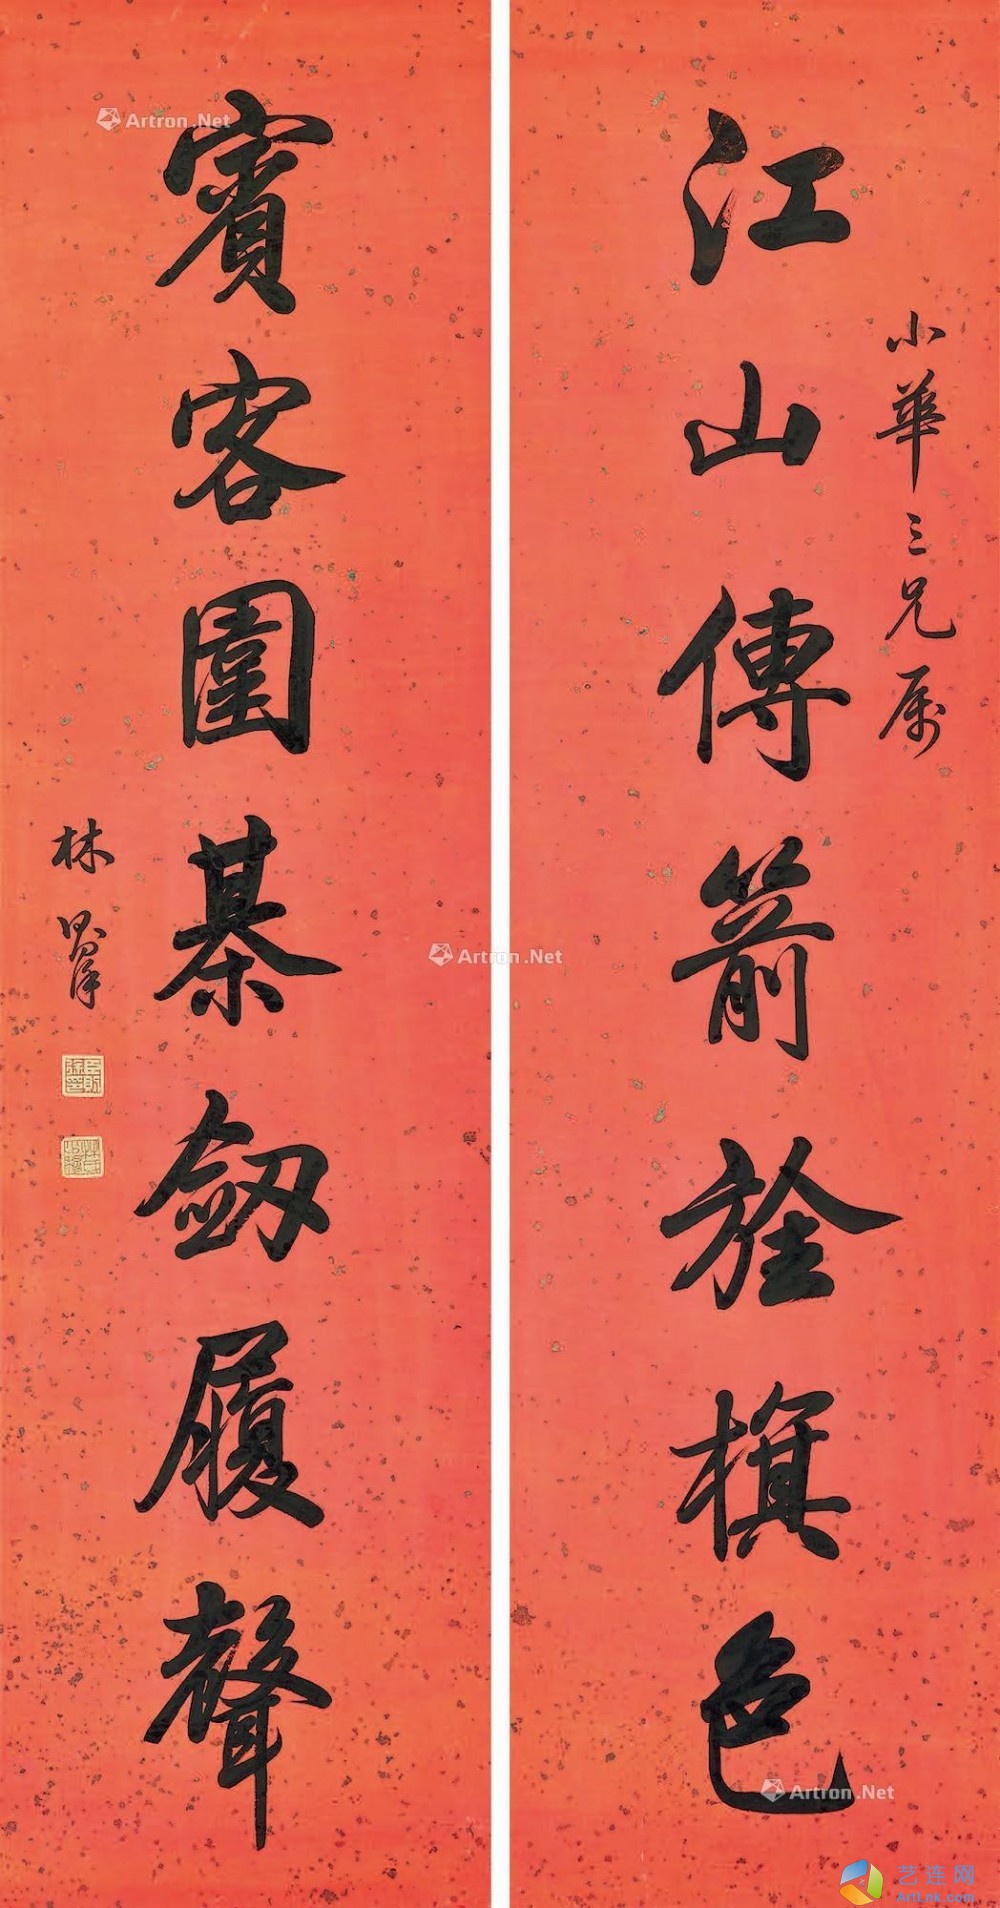 小華三兄属
江山傳箭旌旗色
賓客圍棊剱履聲
林則徐
臣則徐印
Artron.Net
Artron.Net
Artron.Net
艺连网
ArtLnk.com